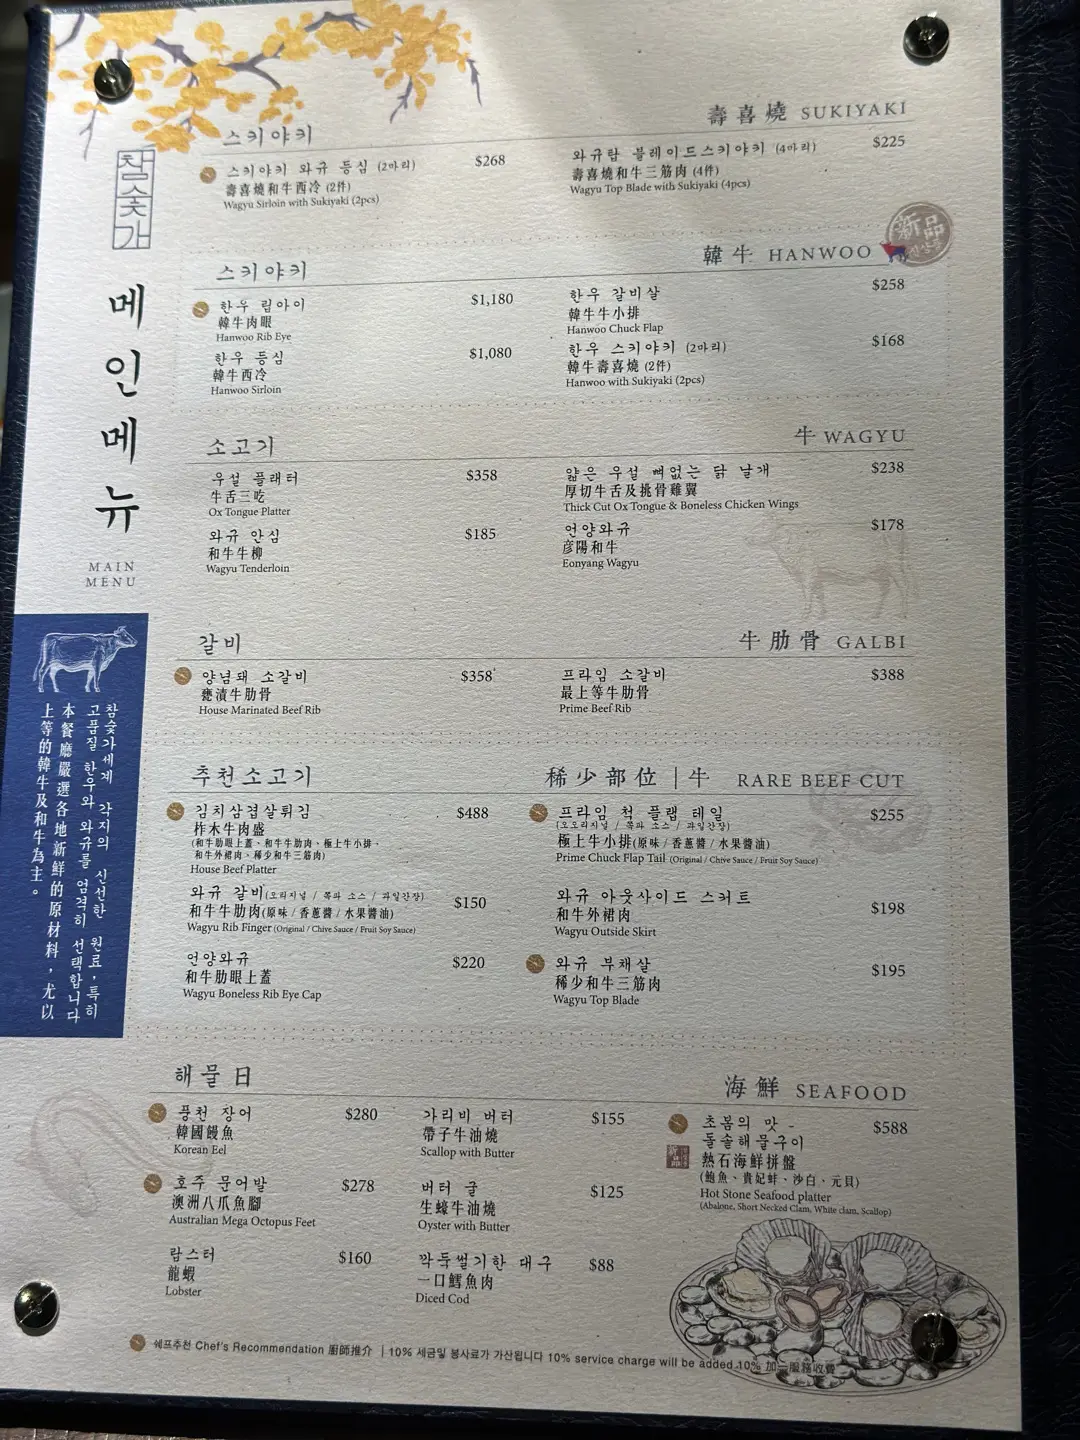 참숯가
메인메뉴
MAIN
MENU
참숯가세계 각지의 신선한 원료, 특히
고품질 한우와 와규를 엄격히 선택합니다
本餐廳嚴選各地新鮮的原材料，尤以
上等的韓牛及和牛為主。
스키야키
壽喜燒 SUKIYAKI
스키야키 와규 등심 (2마리) $268
壽喜燒和牛西冷 (2件)
Wagyu Sirloin with Sukiyaki (2pcs)
와규탑 블레이드스키야키 (4마리) $225
壽喜燒和牛三筋肉 (4件)
Wagyu Top Blade with Sukiyaki (4pcs)
新品
스키야키
韓牛 HANWOO
한우 립아이 $1,180
韓牛肉眼
Hanwoo Rib Eye
한우 등심 $1,080
韓牛西冷
Hanwoo Sirloin
한우 갈비살 $258
韓牛牛小排
Hanwoo Chuck Flap
한우 스키야키 (2마리) $168
韓牛壽喜燒 (2件)
Hanwoo with Sukiyaki (2pcs)
소고기
牛 WAGYU
우설 플래터 $358
牛舌三吃
Ox Tongue Platter
와규 안심 $185
和牛牛柳
Wagyu Tenderloin
얇은 우설 뼈없는 닭 날개 $238
厚切牛舌及挑骨雞翼
Thick Cut Ox Tongue & Boneless Chicken Wings
언양와규 $178
彦陽和牛
Eonyang Wagyu
갈비
牛肋骨 GALBI
양념돼 소갈비 $358
甕漬牛肋骨
House Marinated Beef Rib
프라임 소갈비 $388
最上等牛肋骨
Prime Beef Rib
추천소고기
稀少部位 | 牛 RARE BEEF CUT
김치삼겹살튀김 $488
柞木牛肉盛
(和牛肋眼上蓋、和牛牛肋肉、極上牛小排、
和牛外裙肉、稀少和牛三筋肉)
House Beef Platter
와규 갈비(오리지널 / 쪽파 소스 / 과일간장) $150
和牛牛肋肉(原味 / 香蔥醬 / 水果醬油)
Wagyu Rib Finger (Original / Chive Sauce / Fruit Soy Sauce)
언양와규 $220
和牛肋眼上蓋
Wagyu Boneless Rib Eye Cap
프라임 척 플랩 테일 $255
(오오리지널 / 쪽파 소스 / 과일간장)
極上牛小排(原味 / 香蔥醬 / 水果醬油)
Prime Chuck Flap Tail (Original / Chive Sauce / Fruit Soy Sauce)
와규 아웃사이드 스커트 $198
和牛外裙肉
Wagyu Outside Skirt
와규 부채살 $195
稀少和牛三筋肉
Wagyu Top Blade
해물日
海鮮 SEAFOOD
풍천 장어 $280
韓國鰻魚
Korean Eel
호주 문어발 $278
澳洲八爪魚腳
Australian Mega Octopus Feet
랍스터 $160
龍蝦
Lobster
가리비 버터 $155
帶子牛油燒
Scallop with Butter
버터 굴 $125
生蠔牛油燒
Oyster with Butter
깍둑썰기한 대구 $88
一口鱈魚肉
Diced Cod
초봄의 맛 - $588
돌솥해물구이
新品
熱石海鮮拼盤
(鮑魚、貴妃蚌、沙白、元貝)
Hot Stone Seafood platter
(Abalone, Short Necked Clam, White clam, Scallop)
쉐프추천 Chef's Recommendation 廚師推介 | 10% 세금및 봉사료가 가산됩니다 10% service charge will be added 10% 加一服務收費